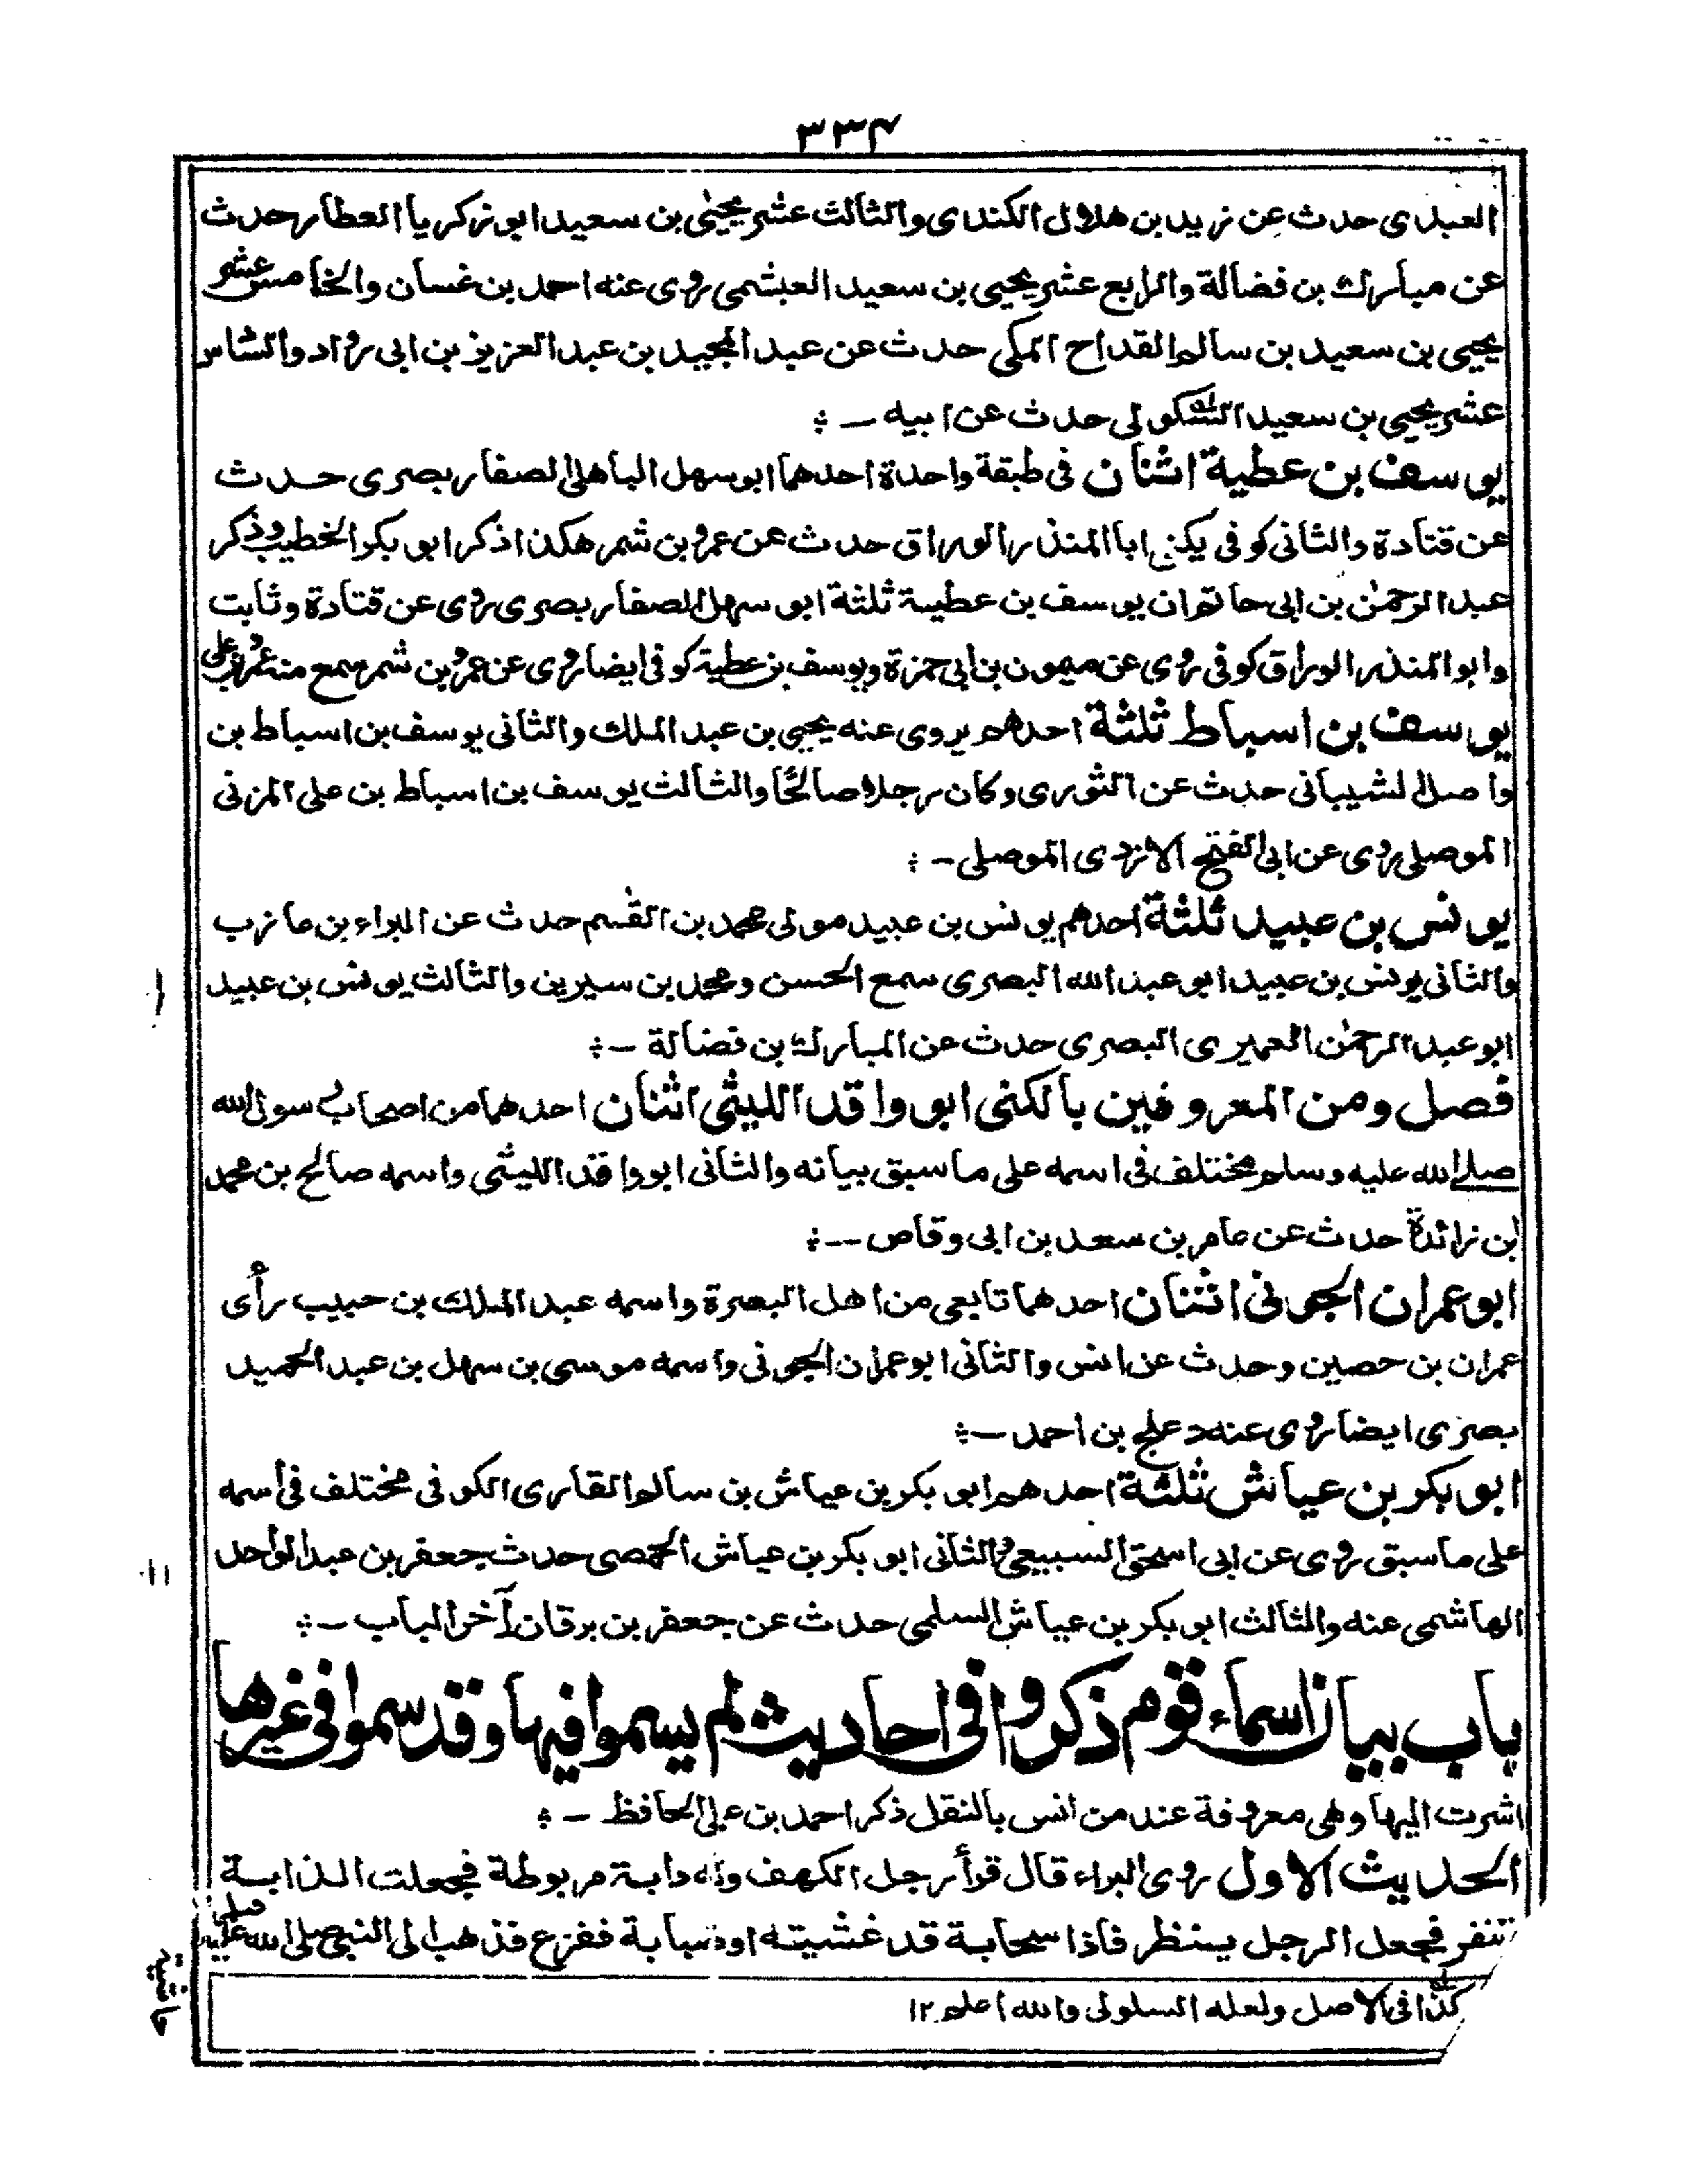 ٣٣٤
العبدى حدث عن زيد بن هلال الكندى والثالث عشر يحيىٰ بن سعيد ابو زكريا العطار حدث
عن مبارك بن فضالة والرابع عشر يحيى بن سعيد العبشمى روى عنه احمد بن غسان والخامس عشر
يحيى بن سعيد بن سالم القداح المكى حدث عن عبد المجيد بن عبد العزيز بن ابى رواد والسادس
عشر يحيى بن سعيد السكولى حدث عن ابيه ـ
يوسف بن عطية اثنان فى طبقة واحدة احدهما ابو سهل الباهلى الصفار بصرى حدث
عن قتادة والثانى كوفى يكنى ابا المنذر الوراق حدث عن عمرو بن شمر هكذا ذكر ابو بكر الخطيب وذكر
عبد الرحمٰن بن ابى حاتم ان يوسف بن عطية ثلثة ابو سهل الصفار بصرى روى عن قتادة وثابت
وابو المنذر الوراق كوفى روى عن ميمون بن ابى حمزة ويوسف بن عطية كوفى ايضا روى عن عمرو بن شمر سمع منه عمرو بن على
يوسف بن اسباط ثلثة احدهم يروى عنه يحيى بن عبد الملك والثانى يوسف بن اسباط بن
واصل الشيبانى حدث عن الثورى وكان رجلا صالحًا والثالث يوسف بن اسباط بن على المزنى
الموصلى روى عن ابى الفتح الازدى الموصلى ـ
يونس بن عبيد ثلثة احدهم يونس بن عبيد مولى محمد بن القٰسم حدث عن البراء بن عازب
والثانى يونس بن عبيد ابو عبد الله البصرى سمع الحسن ومحمد بن سيرين والثالث يونس بن عبيد
ابو عبد الرحمٰن العميرى البصرى حدث عن المبارك بن فضالة ـ
فصل ومن المعروفين بالكنى ابو واقد الليثى اثنان احدهما من اصحاب رسول الله
صلى الله عليه وسلم مختلف فى اسمه على ما سبق بيانه والثانى ابو واقد الليثى واسمه صالح بن محمد
ابن زائدة حدث عن عامر بن سعد بن ابى وقاص ـ
ابو عمران الجونى اثنان احدهما تابعى من اهل البصرة واسمه عبد الملك بن حبيب رأى
عمران بن حصين وحدث عن انس والثانى ابو عمران الجونى واسمه موسى بن سهل بن عبد الحميد
بصرى ايضا روى عنه دعلج بن احمد ـ
ابو بكر بن عياش ثلثة احدهم ابو بكر بن عياش بن سالم القارى الكوفى مختلف فى اسمه
على ما سبق روى عن ابى اسحٰق السبيعى والثانى ابو بكر بن عياش الحمصى حدث جعفر بن عبد الواحد
الهاشمى عنه والثالث ابو بكر بن عياش السلمى حدث عن جعفر بن برقان آخر الباب ـ
باب بيان اسماء قوم ذكروا فى احاديث لم يسموا فيها وقد سموا فى غيرها
اشرت اليها وهى معروفة عند من انس بالنقل ذكر احمد بن على الحافظ ـ
الحديث الاول روى البراء قال قرأ رجل الكهف وله دابة مربوطة فجعلت الدابة
تنفر فجعل الرجل ينظر فاذا سحابة قد غشيته او ضبابة ففزع فذهب الى النبى صلى الله عليه
حاشية
كذا فى الاصل ولعله السلولى والله اعلم ١٢